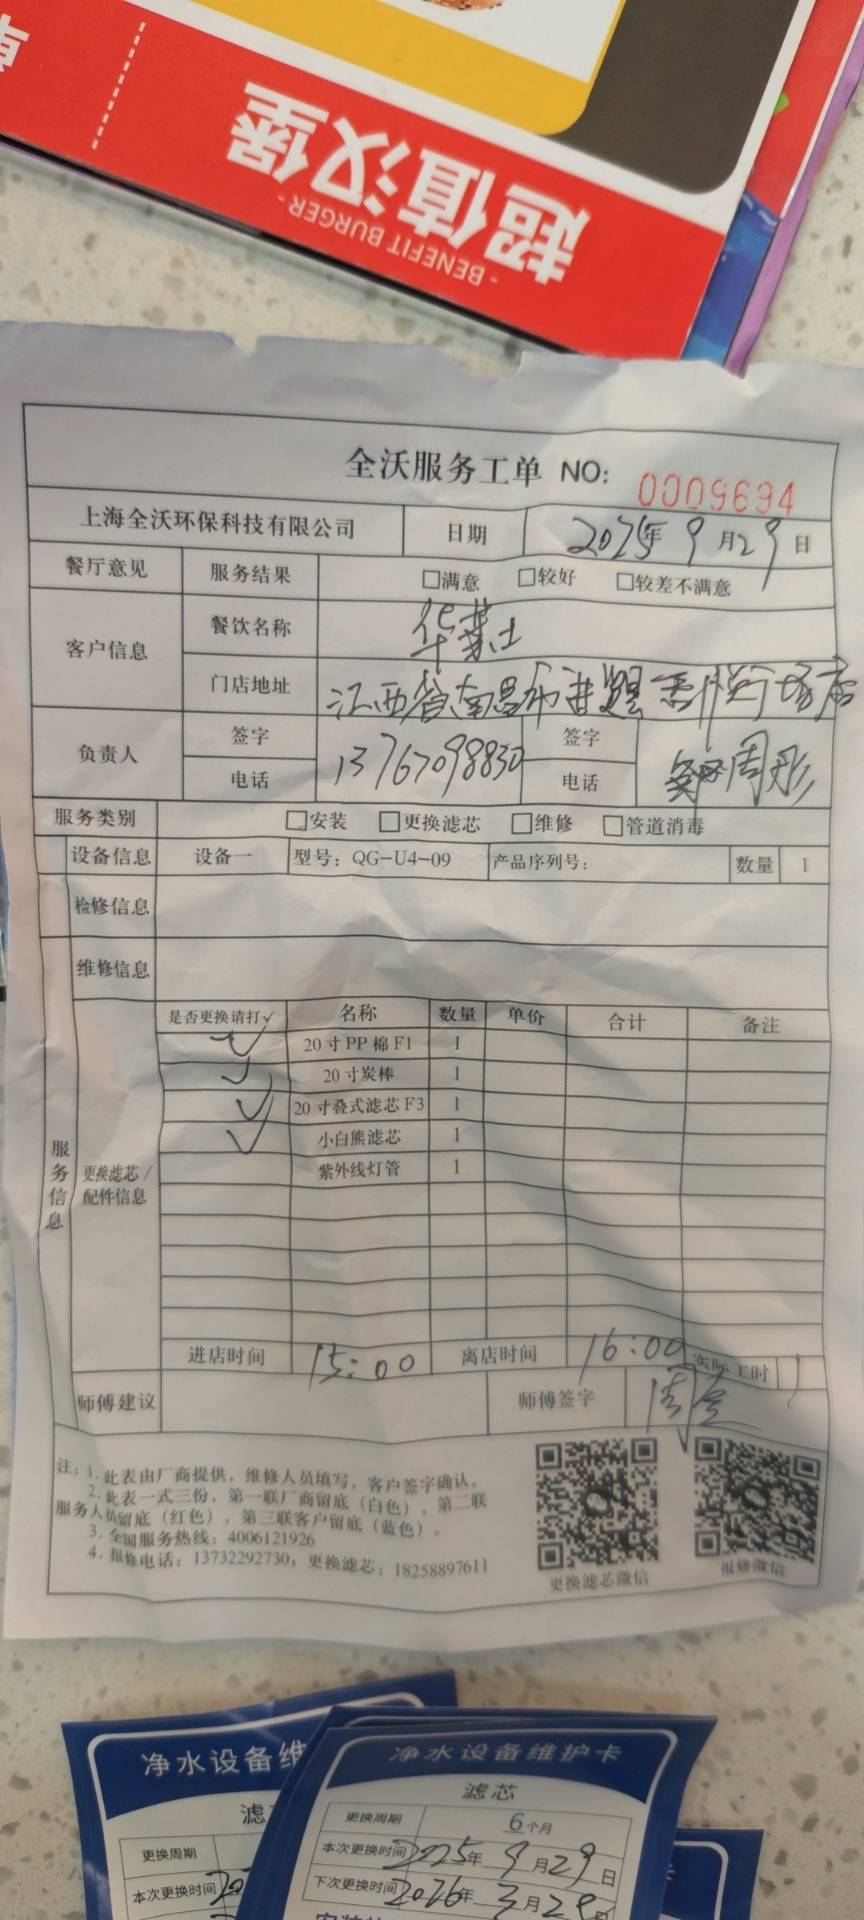 超值汉堡
- BENEFIT BURGER -
全沃服务工单 NO: 0009694
上海全沃环保科技有限公司 日期 2025年9月29日
餐厅意见 服务结果 □满意 □较好 □较差不满意
客户信息 餐饮名称 华莱士
门店地址 江西省南昌市进贤吾悦广场店
负责人 签字 签字
电话 13767098830 电话 周彤
服务类别 □安装 □更换滤芯 □维修 □管道消毒
设备信息 设备一 型号: QG-U4-09 产品序列号: 数量 1
检修信息
维修信息
服务信息
更换滤芯/配件信息
是否更换请打√ 名称 数量 单价 合计 备注
√ 20寸PP棉F1 1
√ 20寸炭棒 1
√ 20寸叠式滤芯F3 1
√ 小白熊滤芯 1
紫外线灯管 1
进店时间 15:00 离店时间 16:00 实际工时 1
师傅建议 师傅签字
注: 1. 此表由厂商提供，维修人员填写，客户签字确认。
2. 此表一式三份，第一联厂商留底（白色），第二联
服务人员留底（红色），第三联客户留底（蓝色）。
3. 全国服务热线: 4006121926
4. 报修电话: 13732292730; 更换滤芯: 18258897611
更换滤芯微信 报修微信
净水设备维
滤
更换周期
本次更换时间 20
净水设备维护卡
滤芯
更换周期 6个月
本次更换时间 2025年9月29日
下次更换时间 2026年3月29日